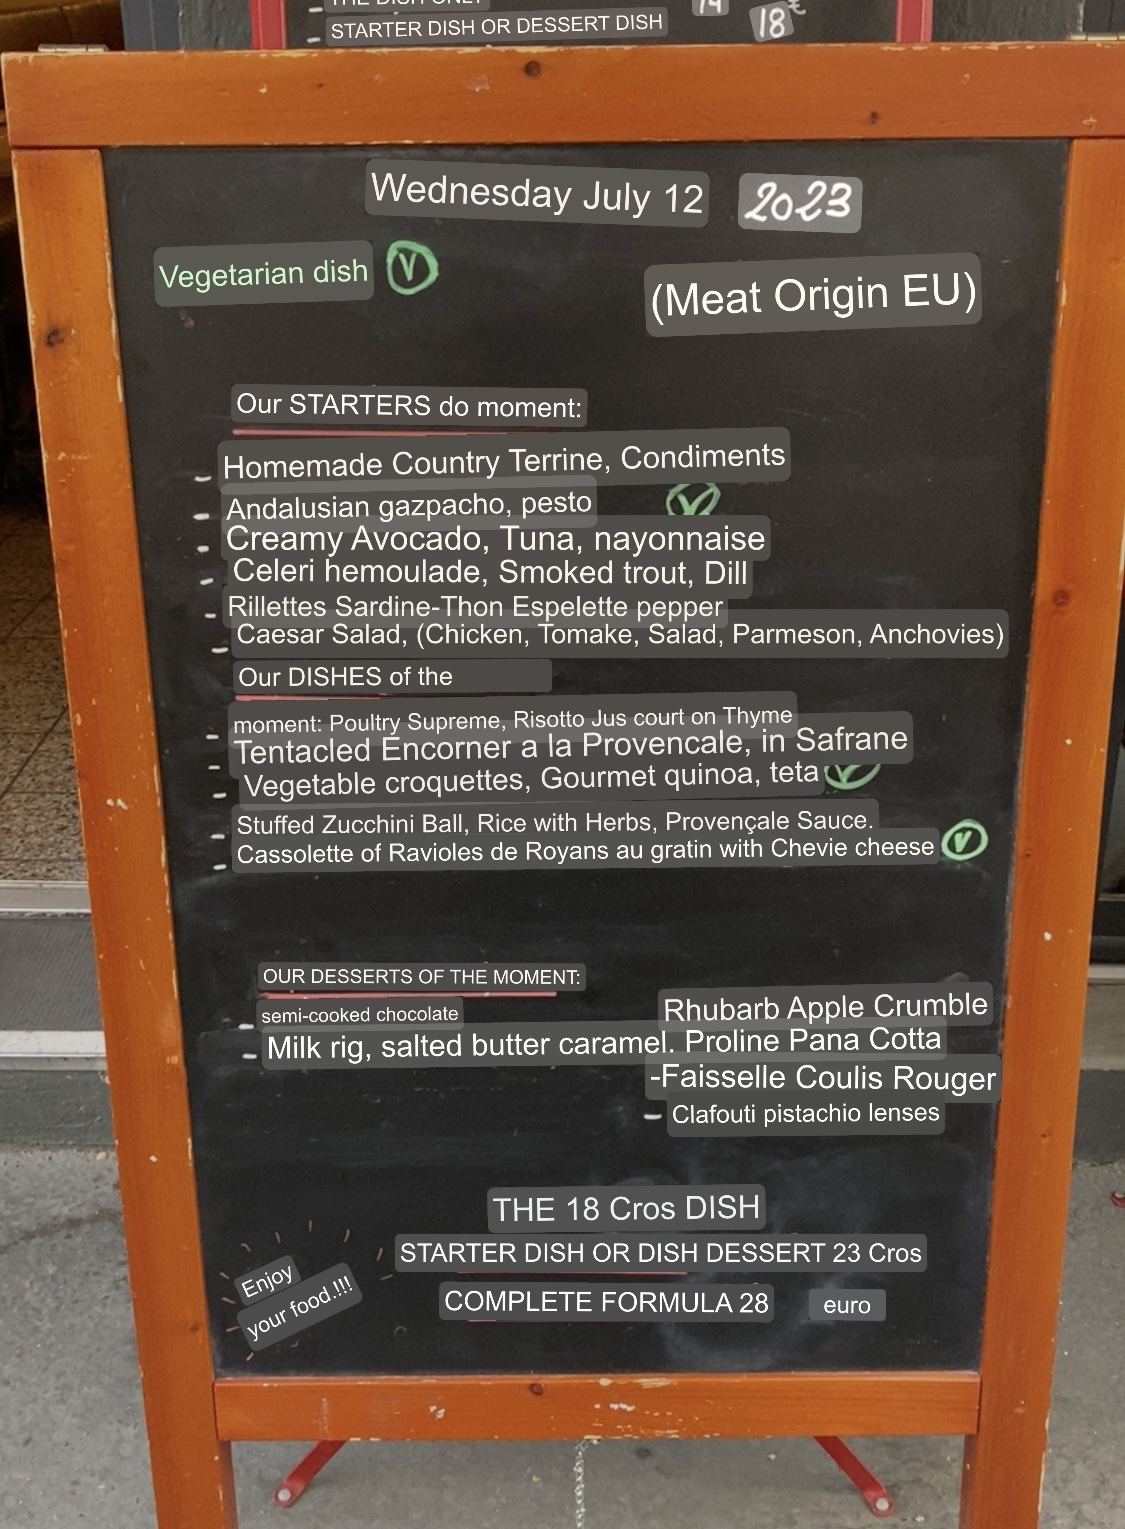 THE DISH ONLY 14
STARTER DISH OR DESSERT DISH 18€
Wednesday July 12 2023
Vegetarian dish V
(Meat Origin EU)
Our STARTERS do moment:
- Homemade Country Terrine, Condiments
- Andalusian gazpacho, pesto V
- Creamy Avocado, Tuna, nayonnaise
- Celeri hemoulade, Smoked trout, Dill
- Rillettes Sardine-Thon Espelette pepper
- Caesar Salad, (Chicken, Tomake, Salad, Parmeson, Anchovies)
Our DISHES of the
- moment: Poultry Supreme, Risotto Jus court on Thyme
- Tentacled Encorner a la Provencale, in Safrane
- Vegetable croquettes, Gourmet quinoa, teta V
- Stuffed Zucchini Ball, Rice with Herbs, Provençale Sauce.
- Cassolette of Ravioles de Royans au gratin with Chevie cheese V
OUR DESSERTS OF THE MOMENT:
- semi-cooked chocolate
Rhubarb Apple Crumble
- Milk rig, salted butter caramel. Proline Pana Cotta
-Faisselle Coulis Rouger
- Clafouti pistachio lenses
THE 18 Cros DISH
STARTER DISH OR DISH DESSERT 23 Cros
COMPLETE FORMULA 28 euro
Enjoy
your food.!!!